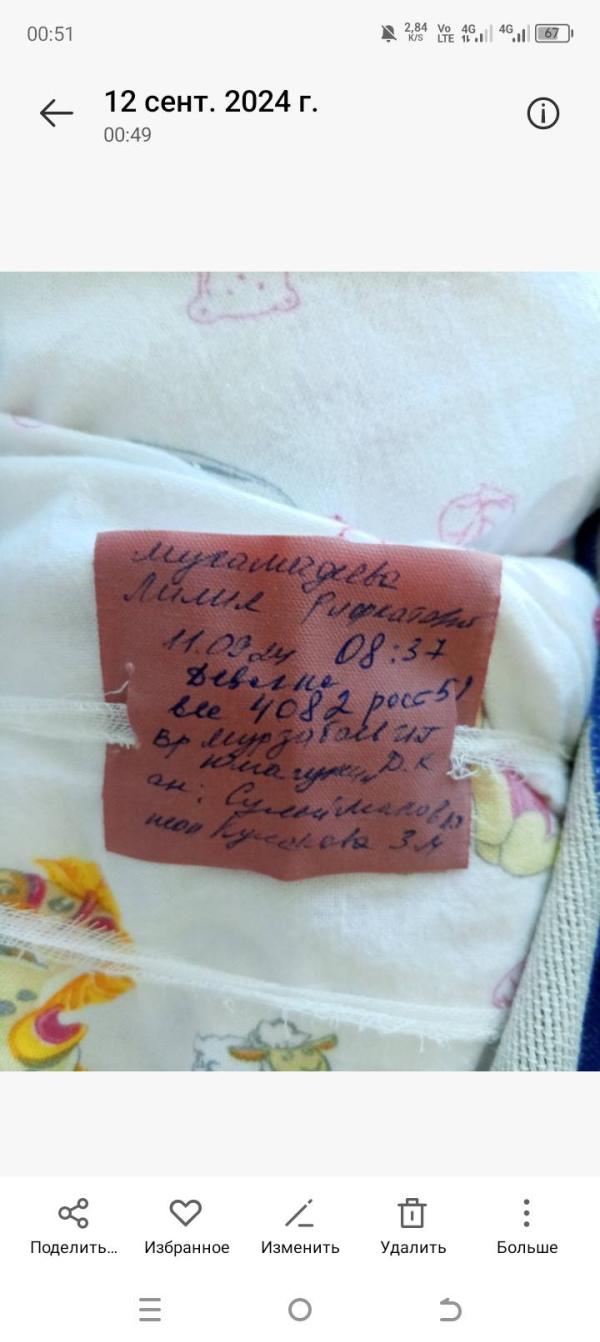 00:51
2,84 K/S Vo LTE 4G 4G 67
12 сент. 2024 г.
00:49
Мухамадеева
Лилия Рифкатовна
11.09.24 08:37
Девочка
вес 4082 рост 51
Вр Мурзабаи
Д.К
ан: Сулейманов
Кулакова З.М
Поделить...
Избранное
Изменить
Удалить
Больше